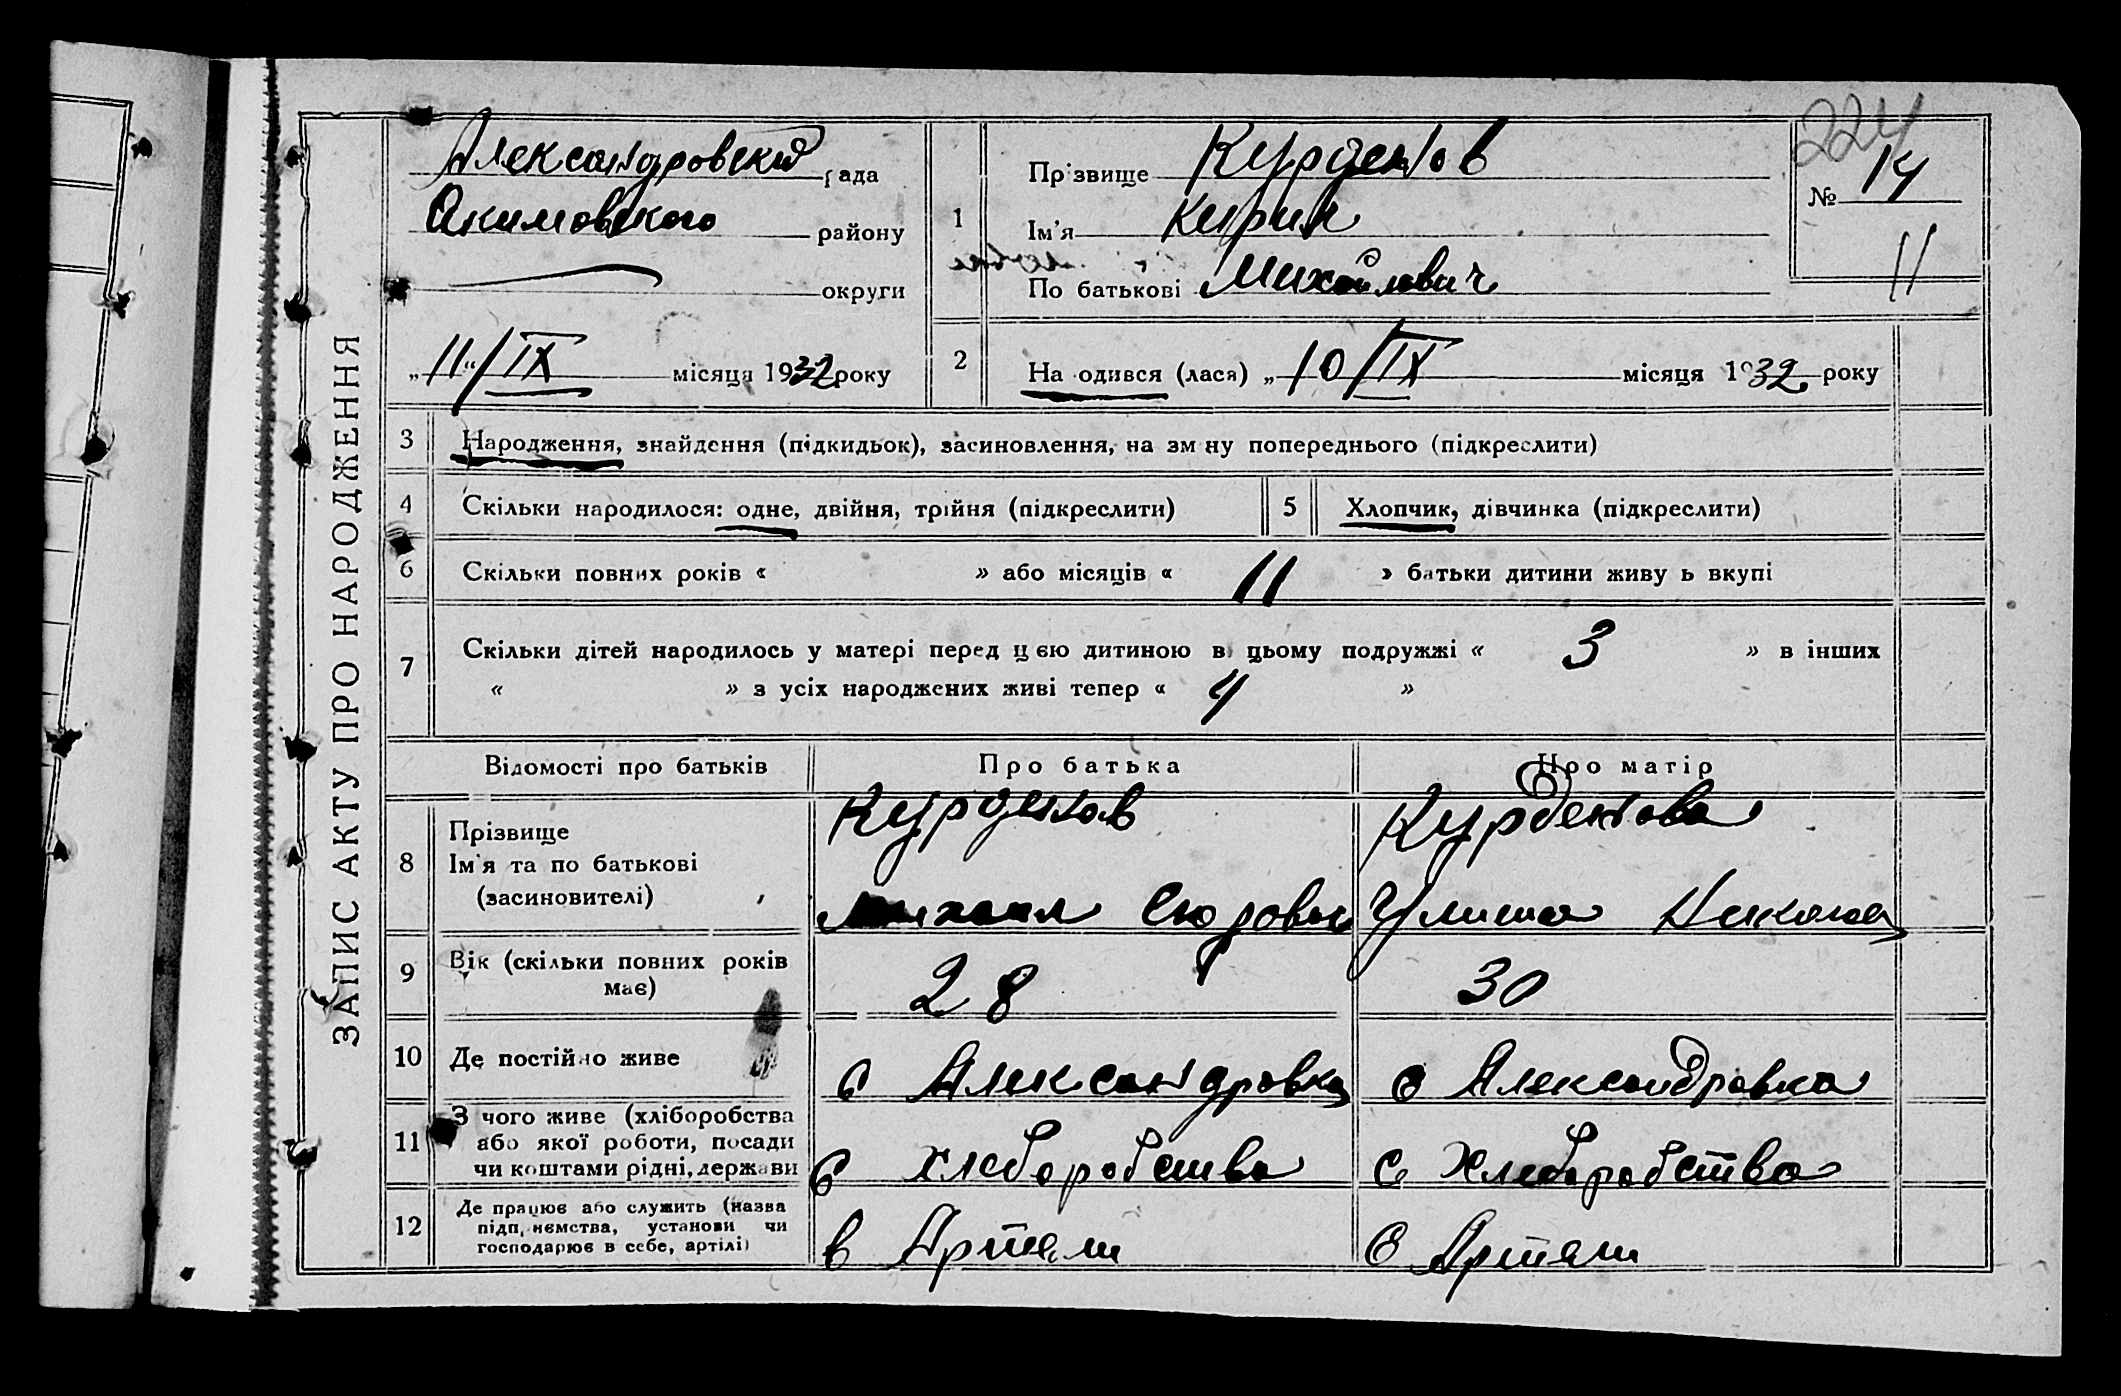 ЗАПИС АКТУ ПРО НАРОДЖЕННЯ
224
Александровский рада
Акимовского району
округи
„11“/IX місяця 1932 року
1
Прізвище Курденов
Ім'я Кирил
По батькові Михайлович
№ 14
11
2
На одився (лася) „10/IX місяця 1932 року
3 Народження, знайдення (підкидьок), засиновлення, на зм ну попереднього (підкреслити)
4 Скільки народилося: одне, двійня, трійня (підкреслити)
5 Хлопчик, дівчинка (підкреслити)
6 Скільки повних років « » або місяців « 11 » батьки дитини живу ь вкупі
7 Скільки дітей народилось у матері перед цією дитиною в цьому подружжі « 3 » в інших
« » з усіх народжених живі тепер « 4 »
Відомості про батьків Про батька Про матір
8 Прізвище
Ім'я та по батькові
(засиновителі)
Курденов
Михаил
Курденова
9 Вік (скільки повних років
має)
28
30
10 Де постійно живе
с Александровка
с Александровка
11 З чого живе (хліборобства
або якої роботи, посади
чи коштами рідні, держави
с хлеборобства
с Хлеборобства
12 Де працює або служить (назва
підп, иємства, установи чи
господарює в себе, артілі)
в Артели
в Артели